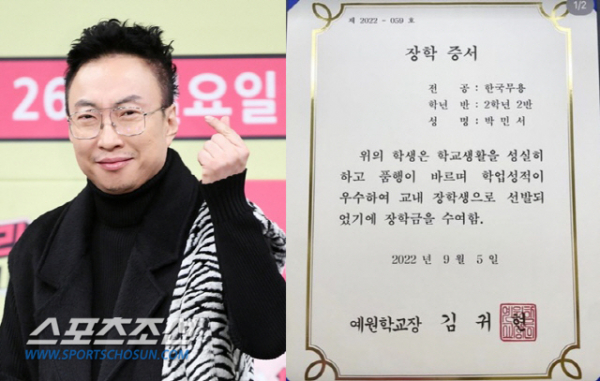 26
요일
스포츠조선
WWW.SPORTSCHOSUN.COM
1/2
제 2022 - 059 호
장학 증서
전 공 : 한국무용
학년 반 : 2학년 2반
성 명 : 박민서
위의 학생은 학교생활을 성실히
하고 품행이 바르며 학업성적이
우수하여 교내 장학생으로 선발되
었기에 장학금을 수여함.
2022 년 9 월 5 일
예원학교장 김 귀 현